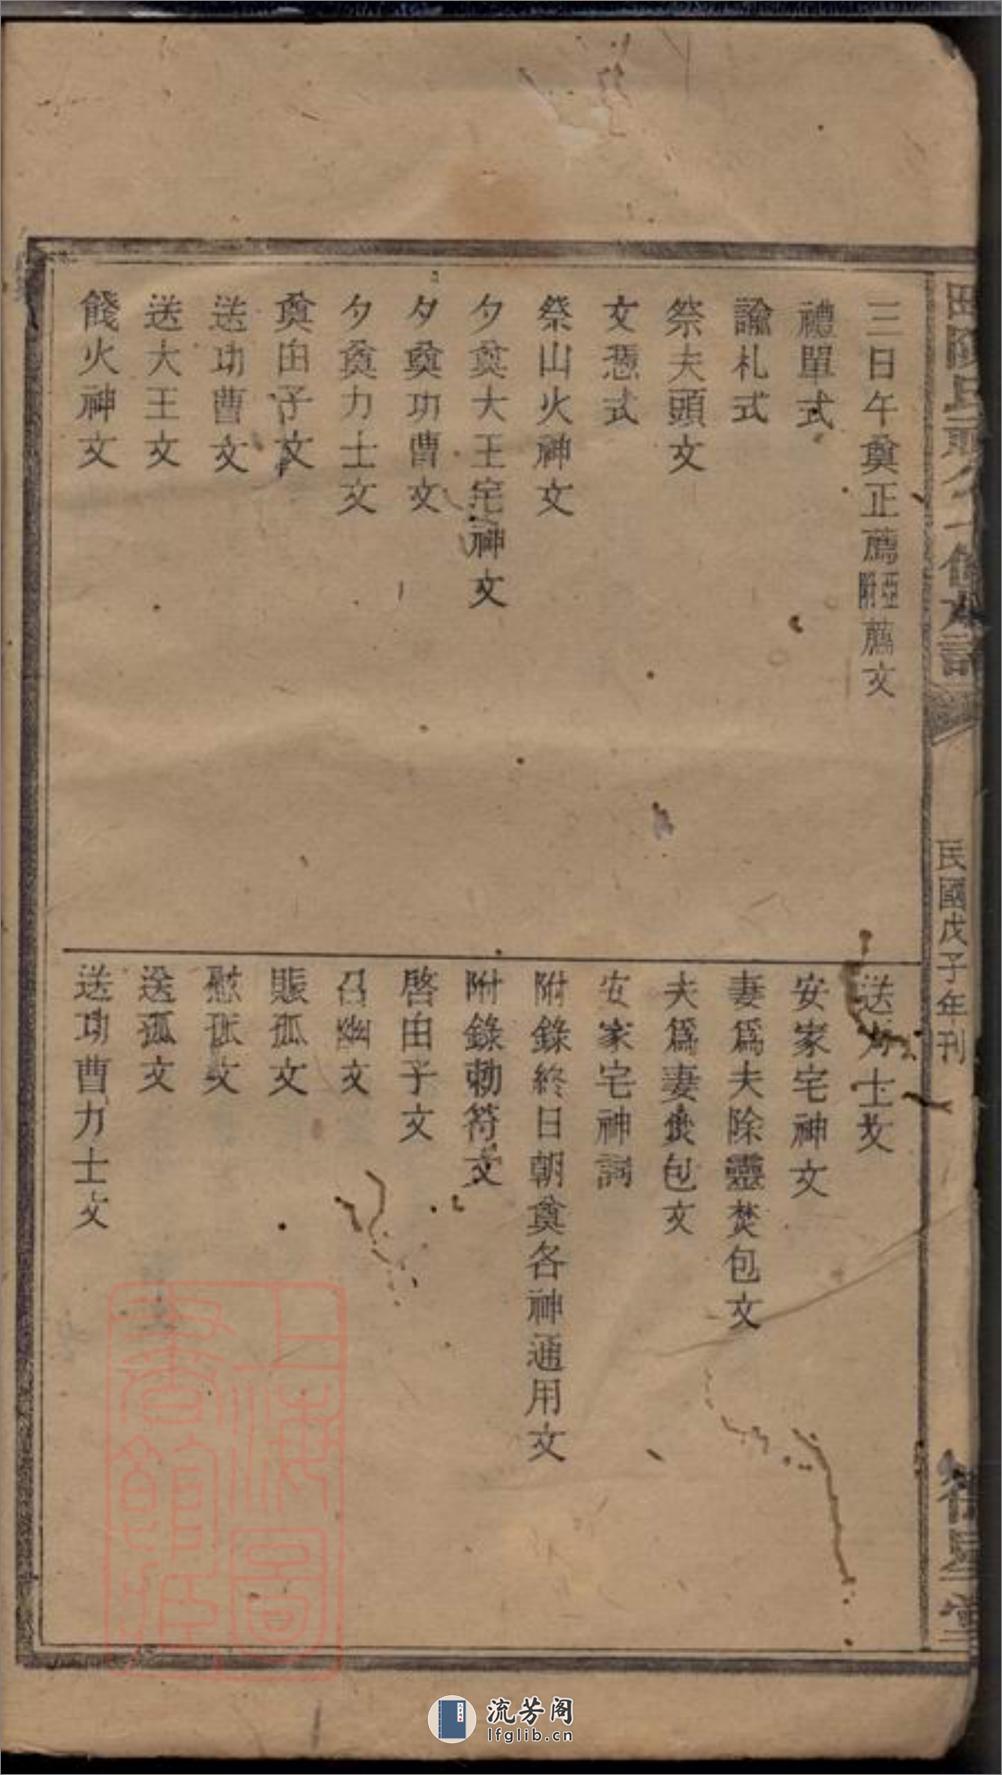 三日午奠正薦附亞薦文
禮單式
諭札式
祭夫頭文
文憑式
祭山火神文
夕奠大王宅神文
夕奠功曹文
夕奠力士文
奠由子文
送功曹文
送大王文
餞火神文
送力士文
安家宅神文
妻爲夫除靈焚包文
夫爲妻焚包文
安家宅神詞
附錄終日朝奠各神通用文
附錄勅符文
啓由子文
召幽文
賑孤文
慰孤文
送孤文
送功曹力士文
民國戊子年刊
上海圖書館藏
流芳阁
lfglib.cn